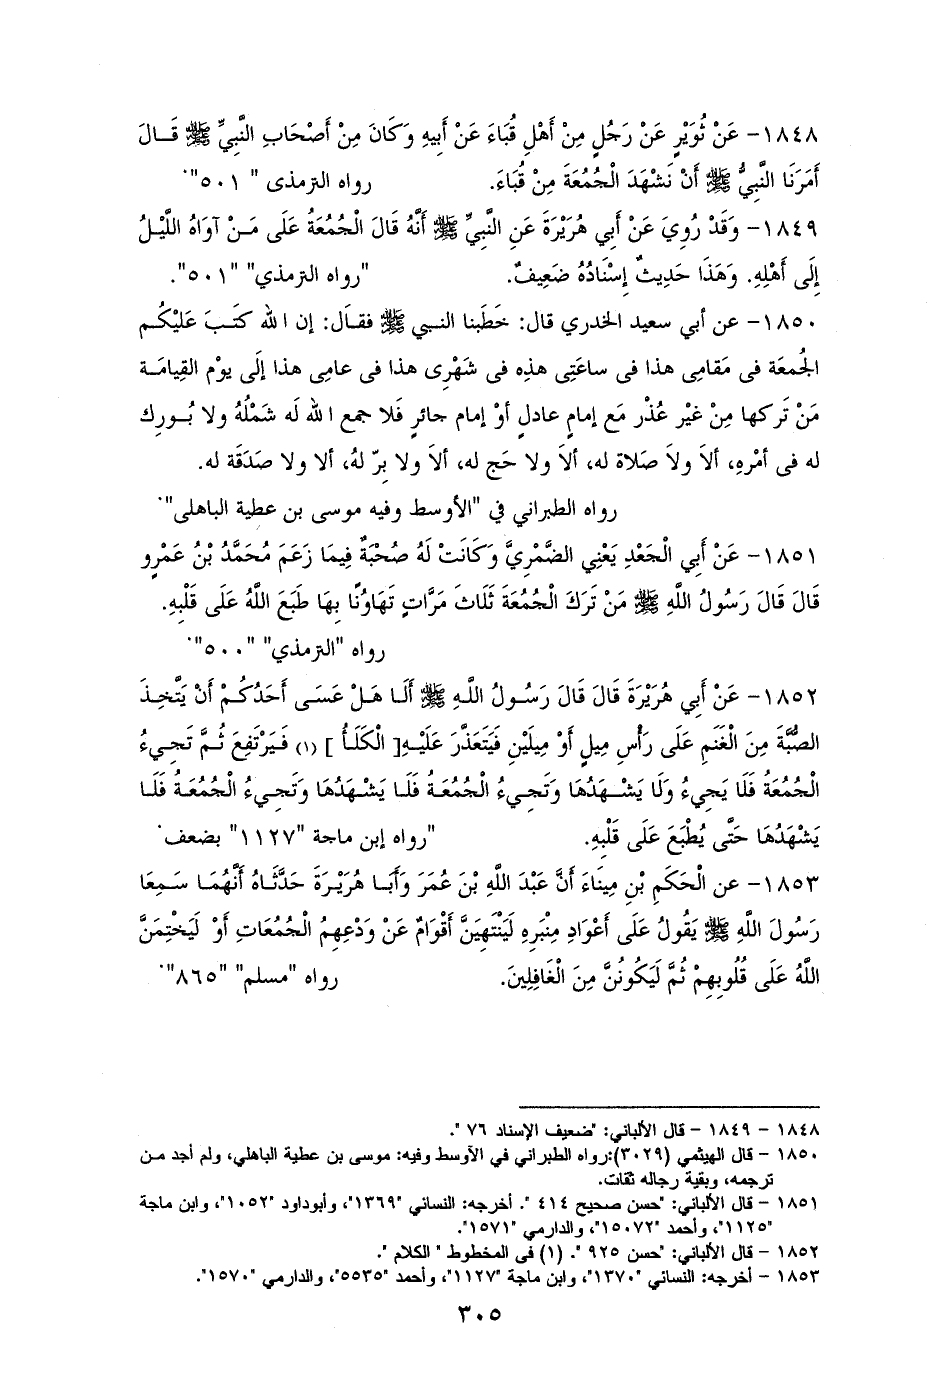 ١٨٤٨- عَنْ ثُوَيْرٍ عَنْ رَجُلٍ مِنْ أَهْلِ قُبَاءَ عَنْ أَبِيهِ وَكَانَ مِنْ أَصْحَابِ النَّبِيِّ ﷺ قَالَ
أَمَرَنَا النَّبِيُّ ﷺ أَنْ نَشْهَدَ الْجُمُعَةَ مِنْ قُبَاءَ. رواه الترمذى " ٥٠١".
١٨٤٩- وَقَدْ رُوِيَ عَنْ أَبِي هُرَيْرَةَ عَنِ النَّبِيِّ ﷺ أَنَّهُ قَالَ الْجُمُعَةُ عَلَى مَنْ آوَاهُ اللَّيْلُ
إِلَى أَهْلِهِ. وَهَذَا حَدِيثٌ إِسْنَادُهُ ضَعِيفٌ. "رواه الترمذي" "٥٠١".
١٨٥٠- عن أبي سعيد الخدري قال: خَطَبنا النبي ﷺ فقال: إن الله كَتَبَ عَليْكُم
الجُمعَة فى مَقامِى هذا فى ساعَتِى هذِه فى شَهْرِى هذا فى عامِى هذا إلَى يوْم القِيامَة
مَنْ تَركها مِنْ غَيْر عُذْر مَع إمامٍ عادلٍ أوْ إمام حائرٍ فَلا جمع الله لَه شَمْلُهُ ولا بُورِك
له فى أمْرِه، ألاَ ولاَ صَلاة له، ألاَ ولا حَج له، ألاَ ولا بِرّ لهُ، ألا ولا صَدَقَة له.
رواه الطبراني في "الأوسط وفيه موسى بن عطية الباهلى".
١٨٥١- عَنْ أَبِي الْجَعْدِ يَعْنِي الضَّمْرِيَّ وَكَانَتْ لَهُ صُحْبَةٌ فِيمَا زَعَمَ مُحَمَّدُ بْنُ عَمْرٍو
قَالَ قَالَ رَسُولُ اللَّهِ ﷺ مَنْ تَرَكَ الْجُمُعَةَ ثَلَاثَ مَرَّاتٍ تَهَاوُنًا بِهَا طَبَعَ اللَّهُ عَلَى قَلْبِهِ.
رواه "الترمذي" "٥٠٠".
١٨٥٢- عَنْ أَبِي هُرَيْرَةَ قَالَ قَالَ رَسُولُ اللَّهِ ﷺ أَلَا هَلْ عَسَى أَحَدُكُمْ أَنْ يَتَّخِذَ
الصُّبَّةَ مِنَ الْغَنَمِ عَلَى رَأْسِ مِيلٍ أَوْ مِيلَيْنِ فَيَتَعَذَّرَ عَلَيْهِ[ الْكَلَأُ ] (١) فَيَرْتَفِعَ ثُمَّ تَجِيءُ
الْجُمُعَةُ فَلَا يَجِيءُ وَلَا يَشْهَدُهَا وَتَجِيءُ الْجُمُعَةُ فَلَا يَشْهَدُهَا وَتَجِيءُ الْجُمُعَةُ فَلَا
يَشْهَدُهَا حَتَّى يُطْبَعَ عَلَى قَلْبِهِ. "رواه إبن ماجة "١١٢٧" بضعف.
١٨٥٣- عن الْحَكَمِ بْنِ مِينَاءَ أَنَّ عَبْدَ اللَّهِ بْنَ عُمَرَ وَأَبَا هُرَيْرَةَ حَدَّثَاهُ أَنَّهُمَا سَمِعَا
رَسُولَ اللَّهِ ﷺ يَقُولُ عَلَى أَعْوَادِ مِنْبَرِهِ لَيَنْتَهِيَنَّ أَقْوَامٌ عَنْ وَدْعِهِمُ الْجُمُعَاتِ أَوْ لَيَخْتِمَنَّ
اللَّهُ عَلَى قُلُوبِهِمْ ثُمَّ لَيَكُونُنَّ مِنَ الْغَافِلِينَ. رواه "مسلم" "٨٦٥".
١٨٤٨ - ١٨٤٩ - قال الألباني: "ضعيف الإسناد ٧٦ ".
١٨٥٠ - قال الهيثمي (٣٠٢٩):رواه الطبراني في الأوسط وفيه: موسى بن عطية الباهلي، ولم أجد من
ترجمه، وبقية رجاله ثقات.
١٨٥١ - قال الألباني: "حسن صحيح ٤١٤ ". أخرجه: النسائي "١٣٦٩"، وأبوداود "١٠٥٢"، وابن ماجة
"١١٢٥"، وأحمد "١٥٠٧٢"، والدارمي "١٥٧١".
١٨٥٢ - قال الألباني: "حسن ٩٢٥ ". (١) فى المخطوط " الكلام ".
١٨٥٣ - أخرجه: النسائي "١٣٧٠"، وابن ماجة "١١٢٧"، وأحمد "٥٥٣٥"، والدارمي "١٥٧٠".
٣٠٥